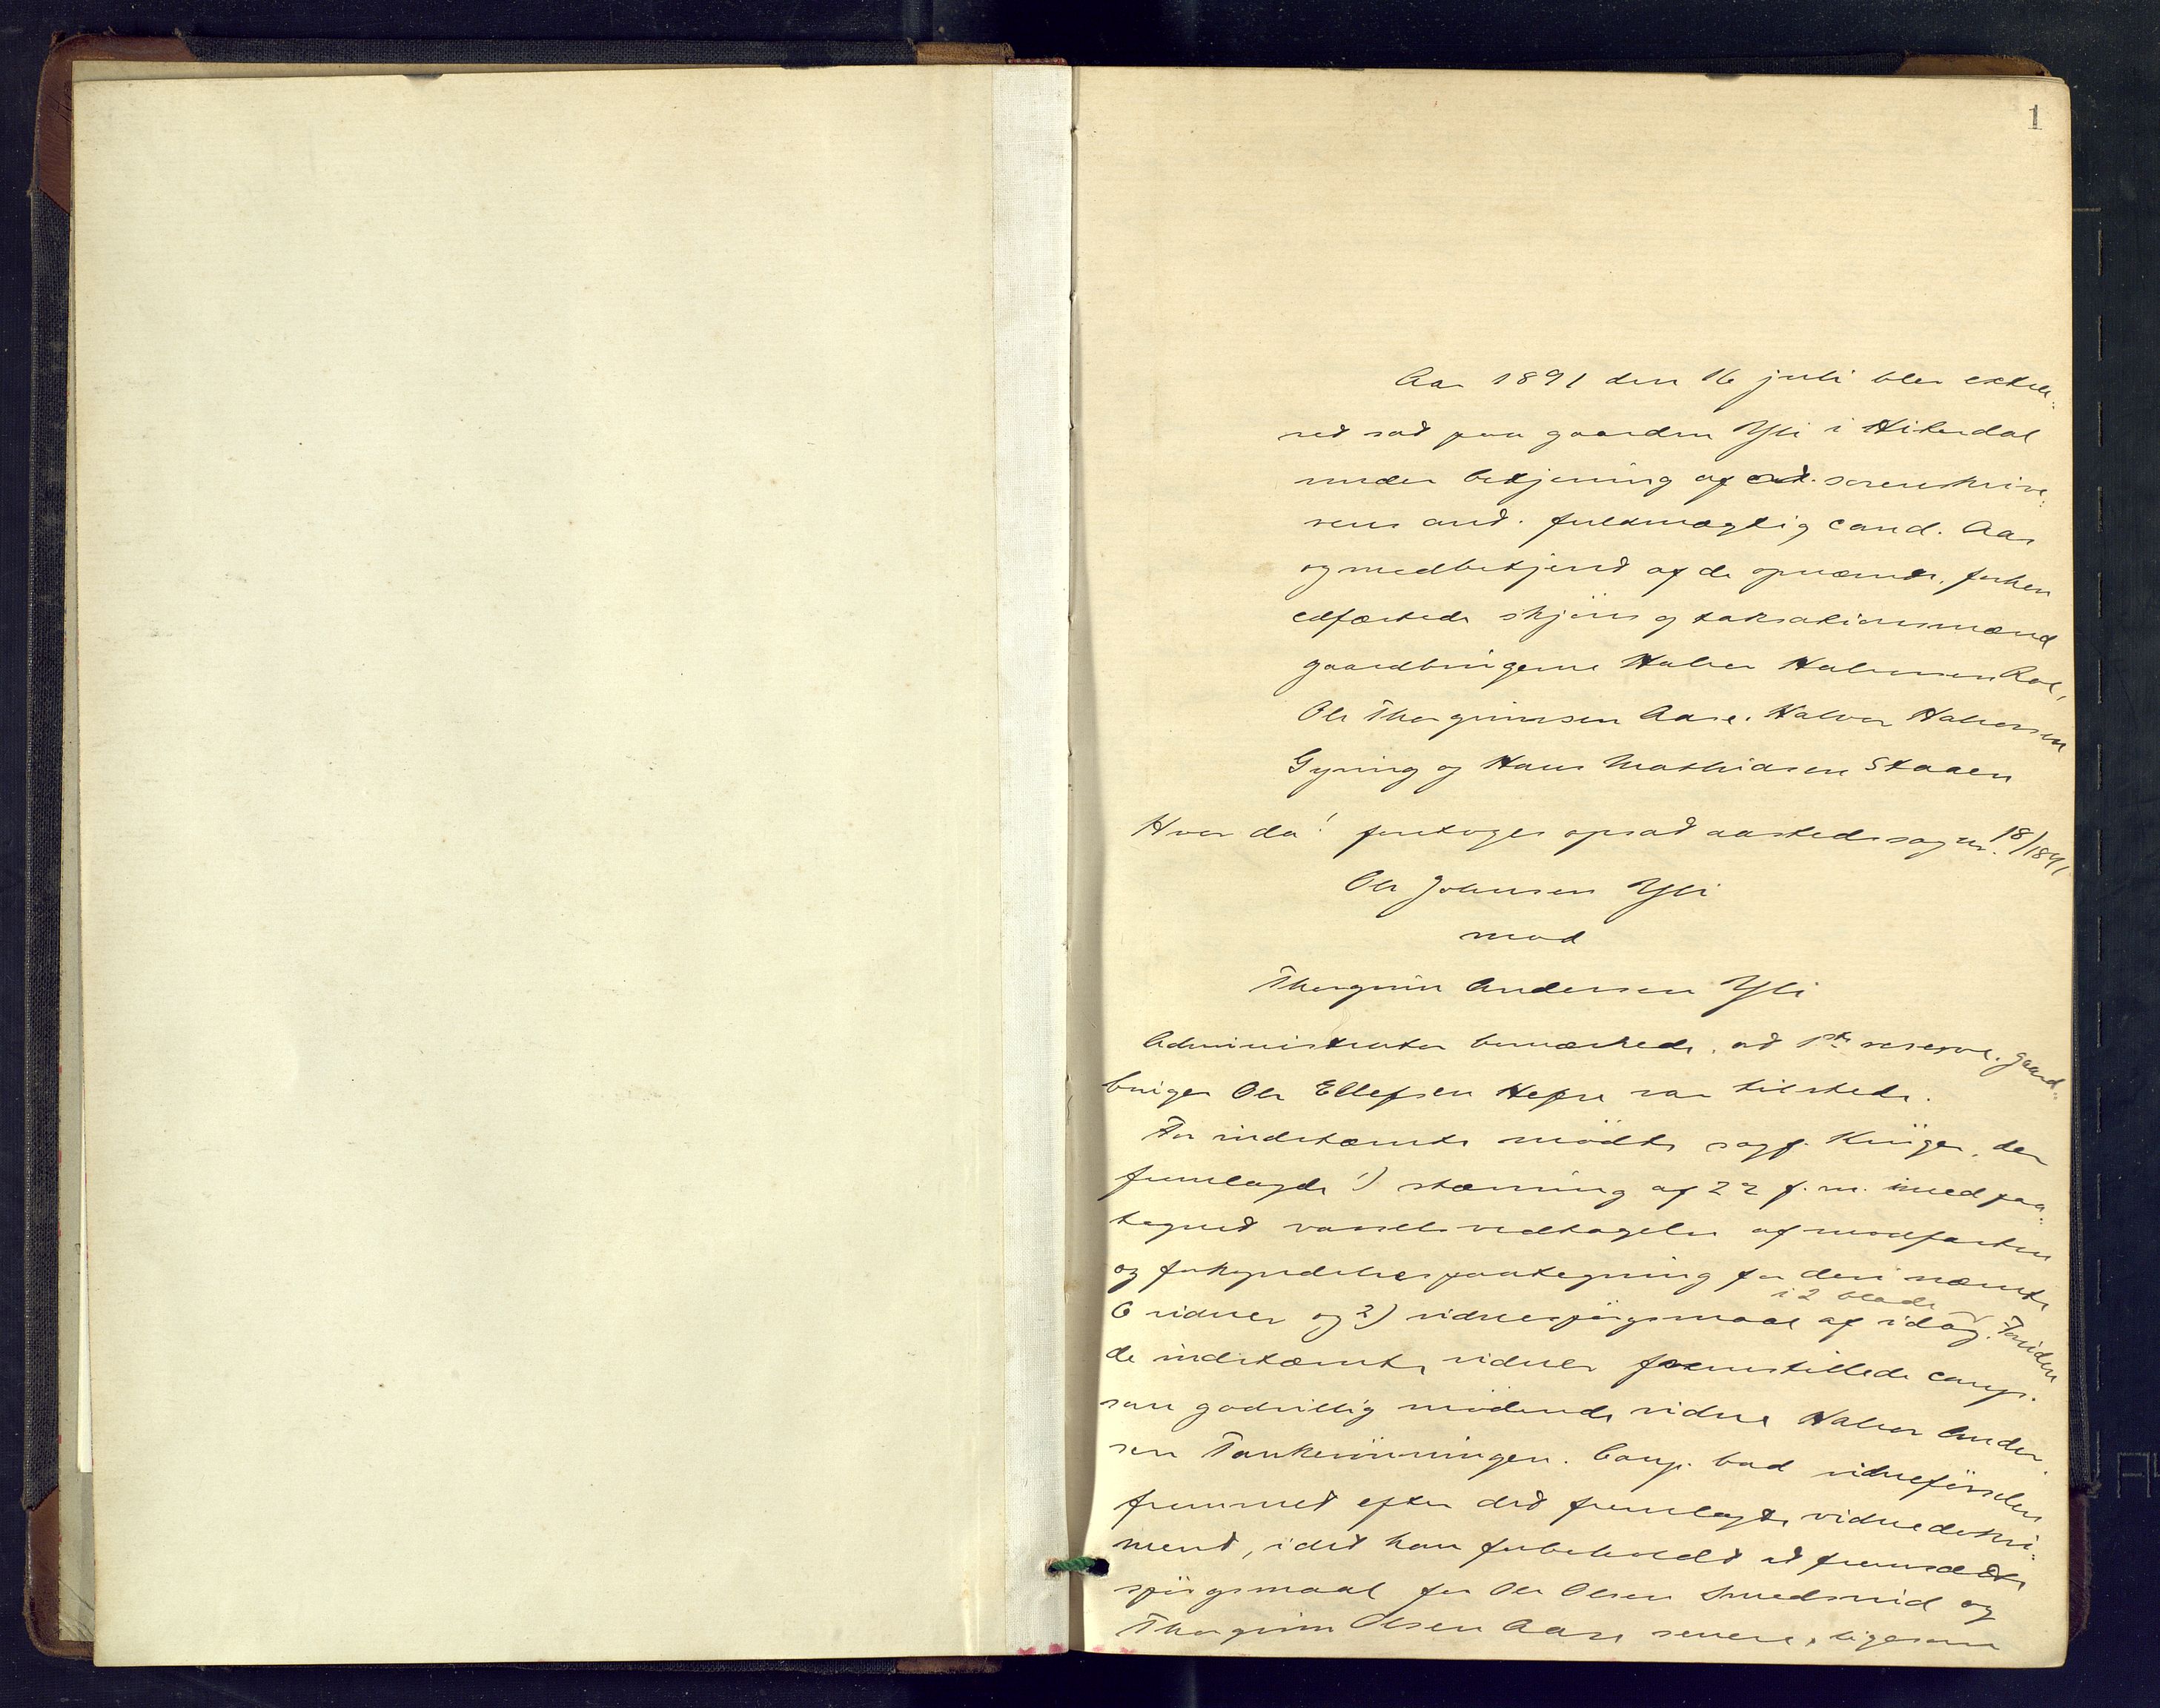 1
Aar 1891 den 16 juli blev extra:
ret sat paa gaarden Yli i Hiterdal
under betjening af edt. sorenskrive:
rens aut. fuldmægtig cand. Aas
og medbetjent af de opnævnte, forhen
edfæstede skjøns og taksationsmænd
gaardbrugerne Halvor Halvorsen Roe,
Ole Thorgrimsen Aase, Halvor Halvorsen
Gyning og Hans Mathiasen Staaen
Hvor da! foretoges opsat aastedssag nr. 18/1891
Ole Johnsen Yli
mod
Thorgrim Andersen Yli
Administrator bemærkede, at 1ste reserve, gaard:
bruger Ole Ellefsen Hefre var tilstede.
For indstævnte mødte sagf. Krüger, der
fremlagde 1) stævning af 22 f. m. med paa:
tegnet varselsvedtagelse af modparten
og forkyndelsespaategning for deri nævnte
6 vidner og 2) vidnespørgsmaal af idag i 2 blade. Foruden
de indstævnte vidner fremstillede comp.
som godvillig mødende vidne Halvor Ander
sen Tankerinningen. Comp. bad vidneførselen
fremmet efter det fremlagte vidnedoku:
ment, idet han forbeholdt at fremsætte
spørgsmaal for Ole Olsen Smedsrud og
Thorgrim Olsen Aase senere, ligesom